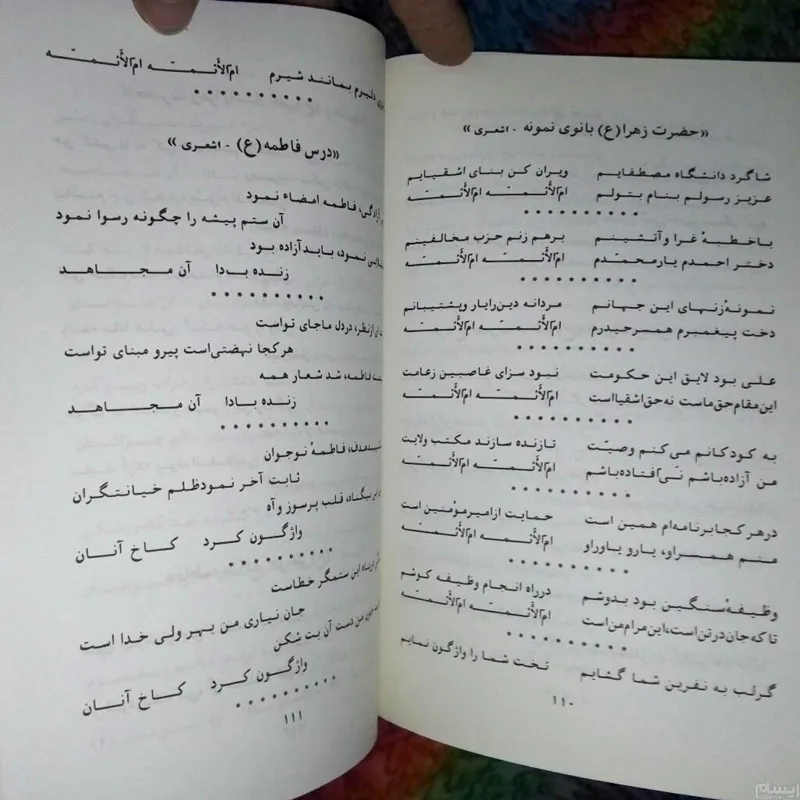 «حضرت زهرا(ع) بانوی نمونه - اشعری»
شاگرد دانشگاه مصطفایم ویران کن بنای اشقیایم
عزیز رسولم بنام بتولم ام‌الأئمـّه ام‌الأئمـّه
* * * * * * * * * *
باخطبهٔ غرا و آتشینم برهم زنم حزب مخالفینم
دختر احمدم یار محمّدم ام‌الأئمـّه ام‌الأئمـّه
* * * * * * * * * *
نمونهٔ زنهای این جهانم مردانه دین رایار وپشتیبانم
دخت پیغمبرم همسر حیدرم ام‌الأئمـّه ام‌الأئمـّه
* * * * * * * * * *
علی بود لایق این حکومت نبود سزای غاصبین زعامت
این مقام حق ماست نه حق اشقیااست ام‌الأئمـّه ام‌الأئمـّه
* * * * * * * * * *
به کودکانم می کنم وصیّت تازنده سازند مکتب ولایت
من آزاده باشم نَی اُفتاده باشم ام‌الأئمـّه ام‌الأئمـّه
* * * * * * * * * *
درهر کجابرنامه‌ام همین است حمایت از امیرمؤمنین است
منم همسر او، یارو یاور او ام‌الأئمـّه ام‌الأئمـّه
* * * * * * * * * *
وظیفهٔ سنگین بود بدوشم درراه انجام وظیفه کوشم
تا که جان در تن است، این مرام من است ام‌الأئمـّه ام‌الأئمـّه
* * * * * * * * * *
گرلب به نفرین شما گشایم تخت شما را واژگون نمایم
۱۱۰
دلیرم بمانند شیرم ام‌الأئمـّه ام‌الأئمـّه
* * * * * * * * * *
«درس فاطمه(ع) - اشعری»
آزادگی، فاطمه امضاء نمود
آن ستم پیشه را چگونه رسوا نمود
نمود، باید آزاده بود
زنده بادا آن مجاهد
* * * * * * * * * *
ازنظر، دردل ماجای تواست
هرکجا نهضتی‌است پیرو مبنای تواست
فاطمه، شد شعار همه
زنده بادا آن مجاهد
* * * * * * * * * *
فاطمهٔ نوجوان
ثابت آخر نمودظلم خیانتگران
قلب پرسوز و آه
واژگون کرد کاخ آنان
* * * * * * * * * *
این ستمگر خطاست
جان نیاری من بهر ولی خدا است
من دست آن بت شکن
واژگون کرد کاخ آنان
* * * * * * * * * *
۱۱۱
ایسام